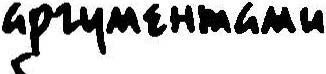 аргументами